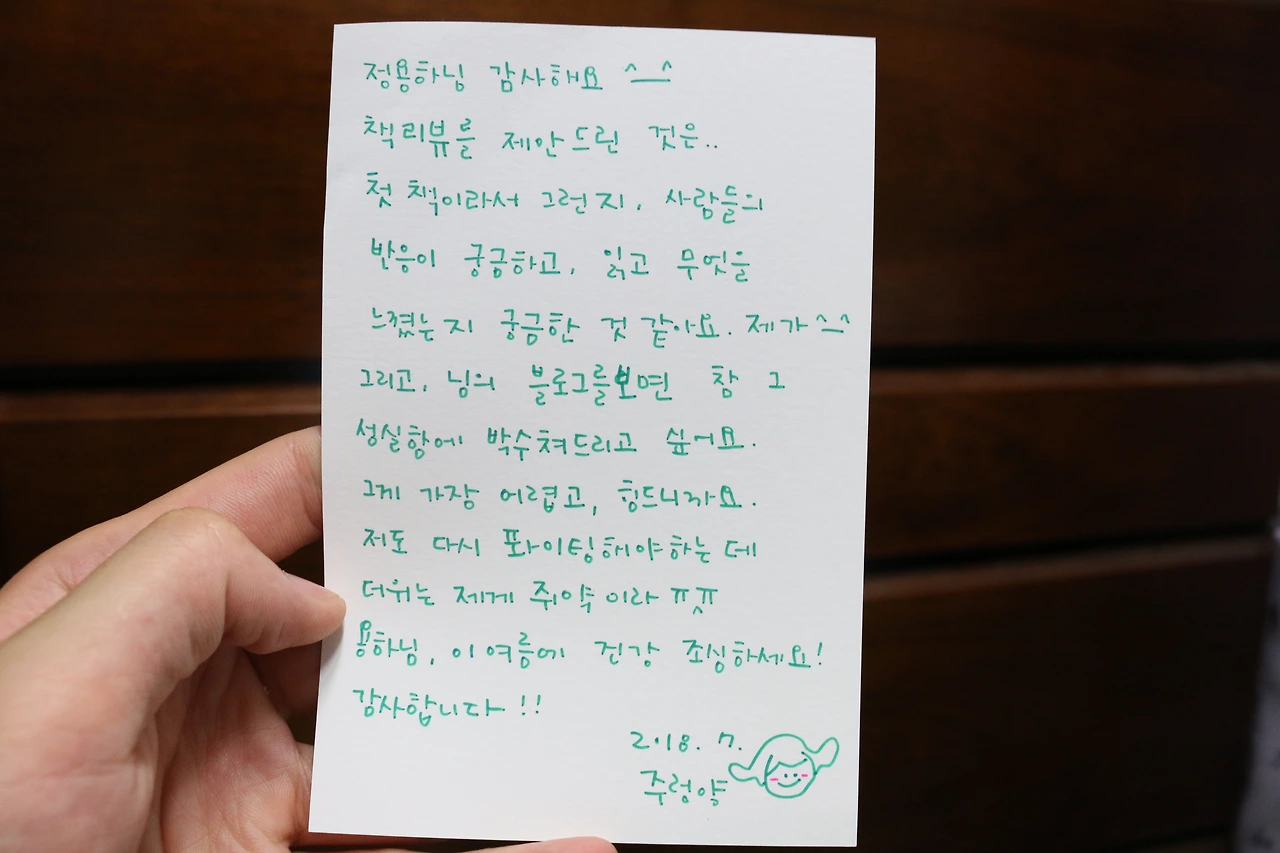 정용하님 감사해요 ^__^
책리뷰를 제안드린 것은..
첫 책이라서 그런지, 사람들의
반응이 궁금하고, 읽고 무엇을
느꼈는지 궁금한 것 같아요. 제가 ^_^
그리고, 님의 블로그를 보면 참 그
성실함에 박수쳐드리고 싶어요.
그게 가장 어렵고, 힘드니까요.
저도 다시 퐈이팅해야하는데
더위는 제게 쥐약이라 ㅠㅅㅠ
용하님, 이 여름에 건강 조심하세요!
감사합니다!!
2018. 7.
주렁약